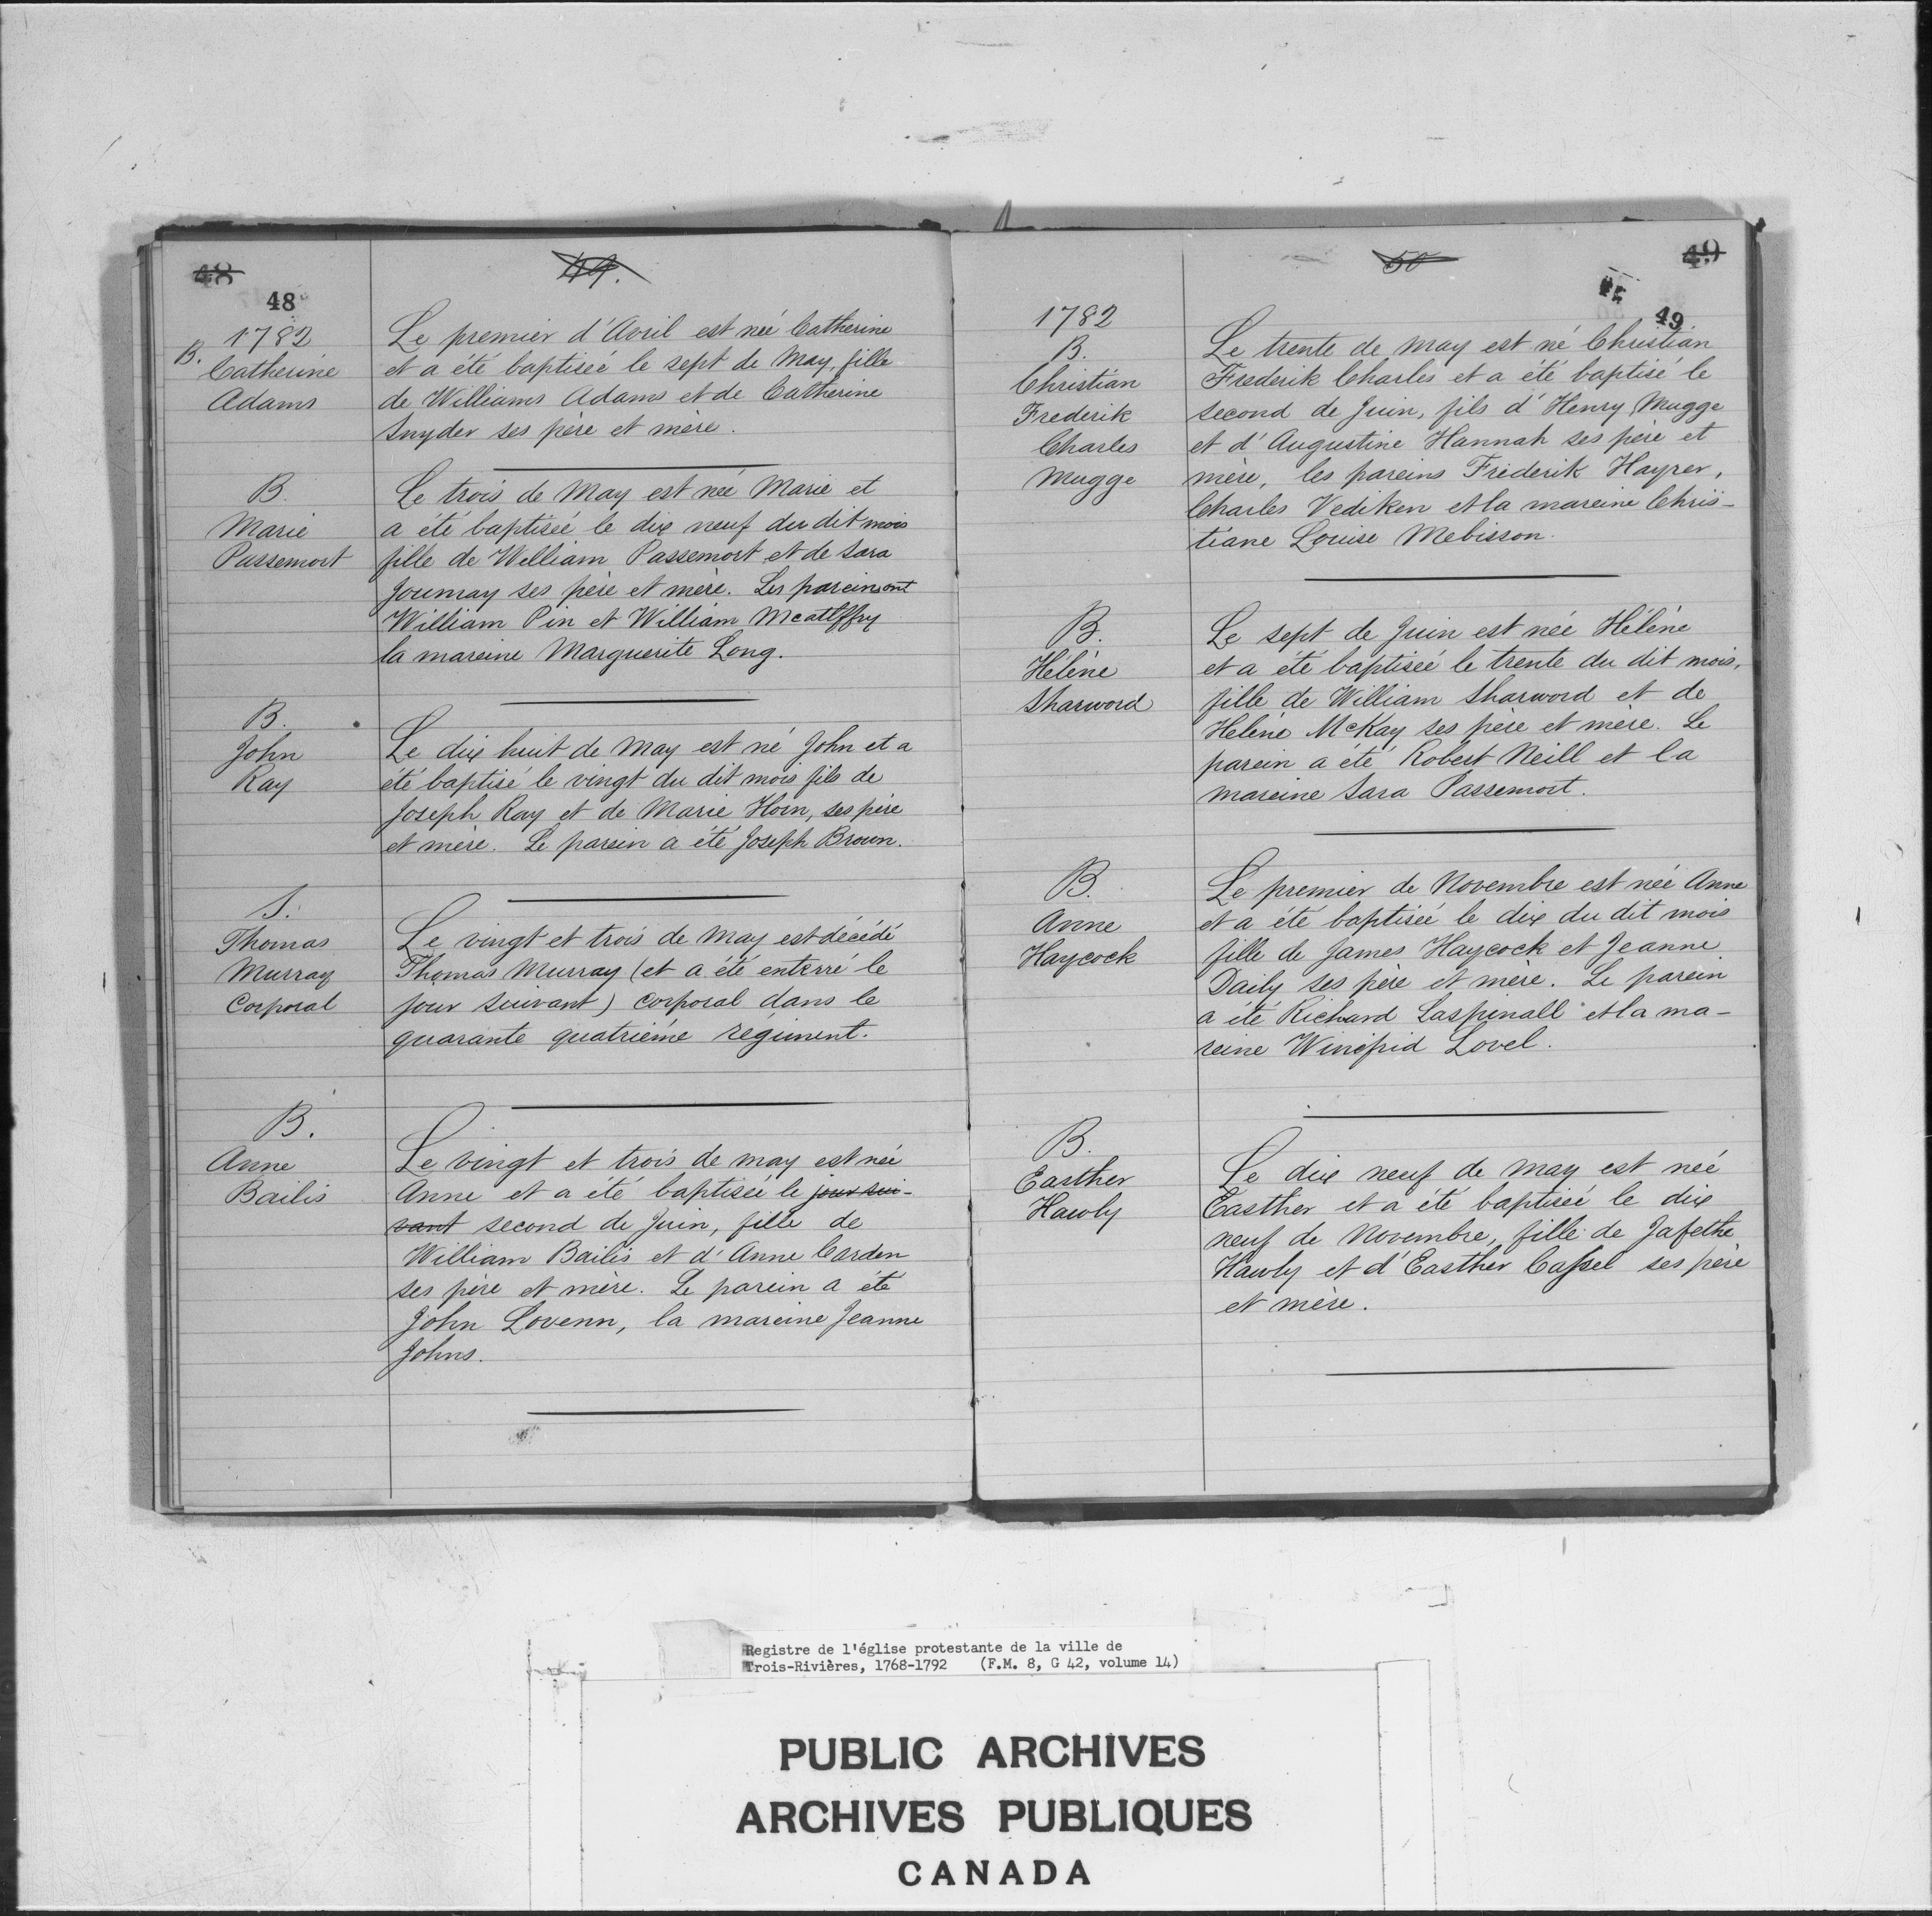 48
49.
48
1782
B. Catherine
Adams
Le premier d'Avril est née Catherine
et a été baptisée le sept de May, fille
de Williams Adams et de Catherine
Snyder ses père et mère.
B.
Marie
Passemort
Le trois de May est née Marie et
a été baptisée le dix neuf du dit mois
fille de William Passemort et de Sara
Joumay ses père et mère. Les parein ont
William Pin et William Mcatlffry
la mareine Marguerite Long.
B.
John
Ray
Le dix huit de May est né John et a
été baptisé le vingt du dit mois fils de
Joseph Ray et de Marie Horn, ses père
et mère. Le parein a été Joseph Broun.
S.
Thomas
Murray
Corporal
Le vingt et trois de May est décédé
Thomas Murray (et a été enterré le
jour suivant) Corporal dans le
quarante quatriéme régiment.
B.
Anne
Bailis
Le vingt et trois de may est née
Anne et a été baptisée le jour sui-
vant second de Juin, fille de
William Bailis et d'Anne Carden
ses père et mère. Le parein a été
John Lovenn, la mareine Jeanne
Johns.
50
49
49
1782
B.
Christian
Frederik
Charles
Mugge
Le trente de may est né Christian
Frederik Charles et a été baptisé le
second de Juin, fils d'Henry Mugge
et d'Augustine Hannah ses père et
mère, les pareins Friderik Hayrer,
Charles Vediken et la mareine Chris-
tiane Louise Mebisson.
B.
Hélène
Sharword
Le sept de Juin est née Hélène
et a été baptisée le trente du dit mois,
fille de William Sharword et de
Helène McKay ses père et mère. Le
parein a été Robert Neill et la
mareine Sara Passemort.
B.
Anne
Haycock
Le premier de Novembre est née Anne
et a été baptisée le dix du dit mois
fille de James Haycock et Jeanne
Daily ses père et mère. Le parein
a été Richard Laspinall et la ma-
reine Winifrid Lovel.
B.
Easther
Hawly
Le dix neuf de May est née
Easther et a été baptisée le dix
neuf de Novembre, fille de Jafethe
Hawly et d'Easther Cassel ses père
et mère.
Registre de l'église protestante de la ville de
Trois-Rivières, 1768-1792 (F.M. 8, G 42, volume 14)
PUBLIC ARCHIVES
ARCHIVES PUBLIQUES
CANADA